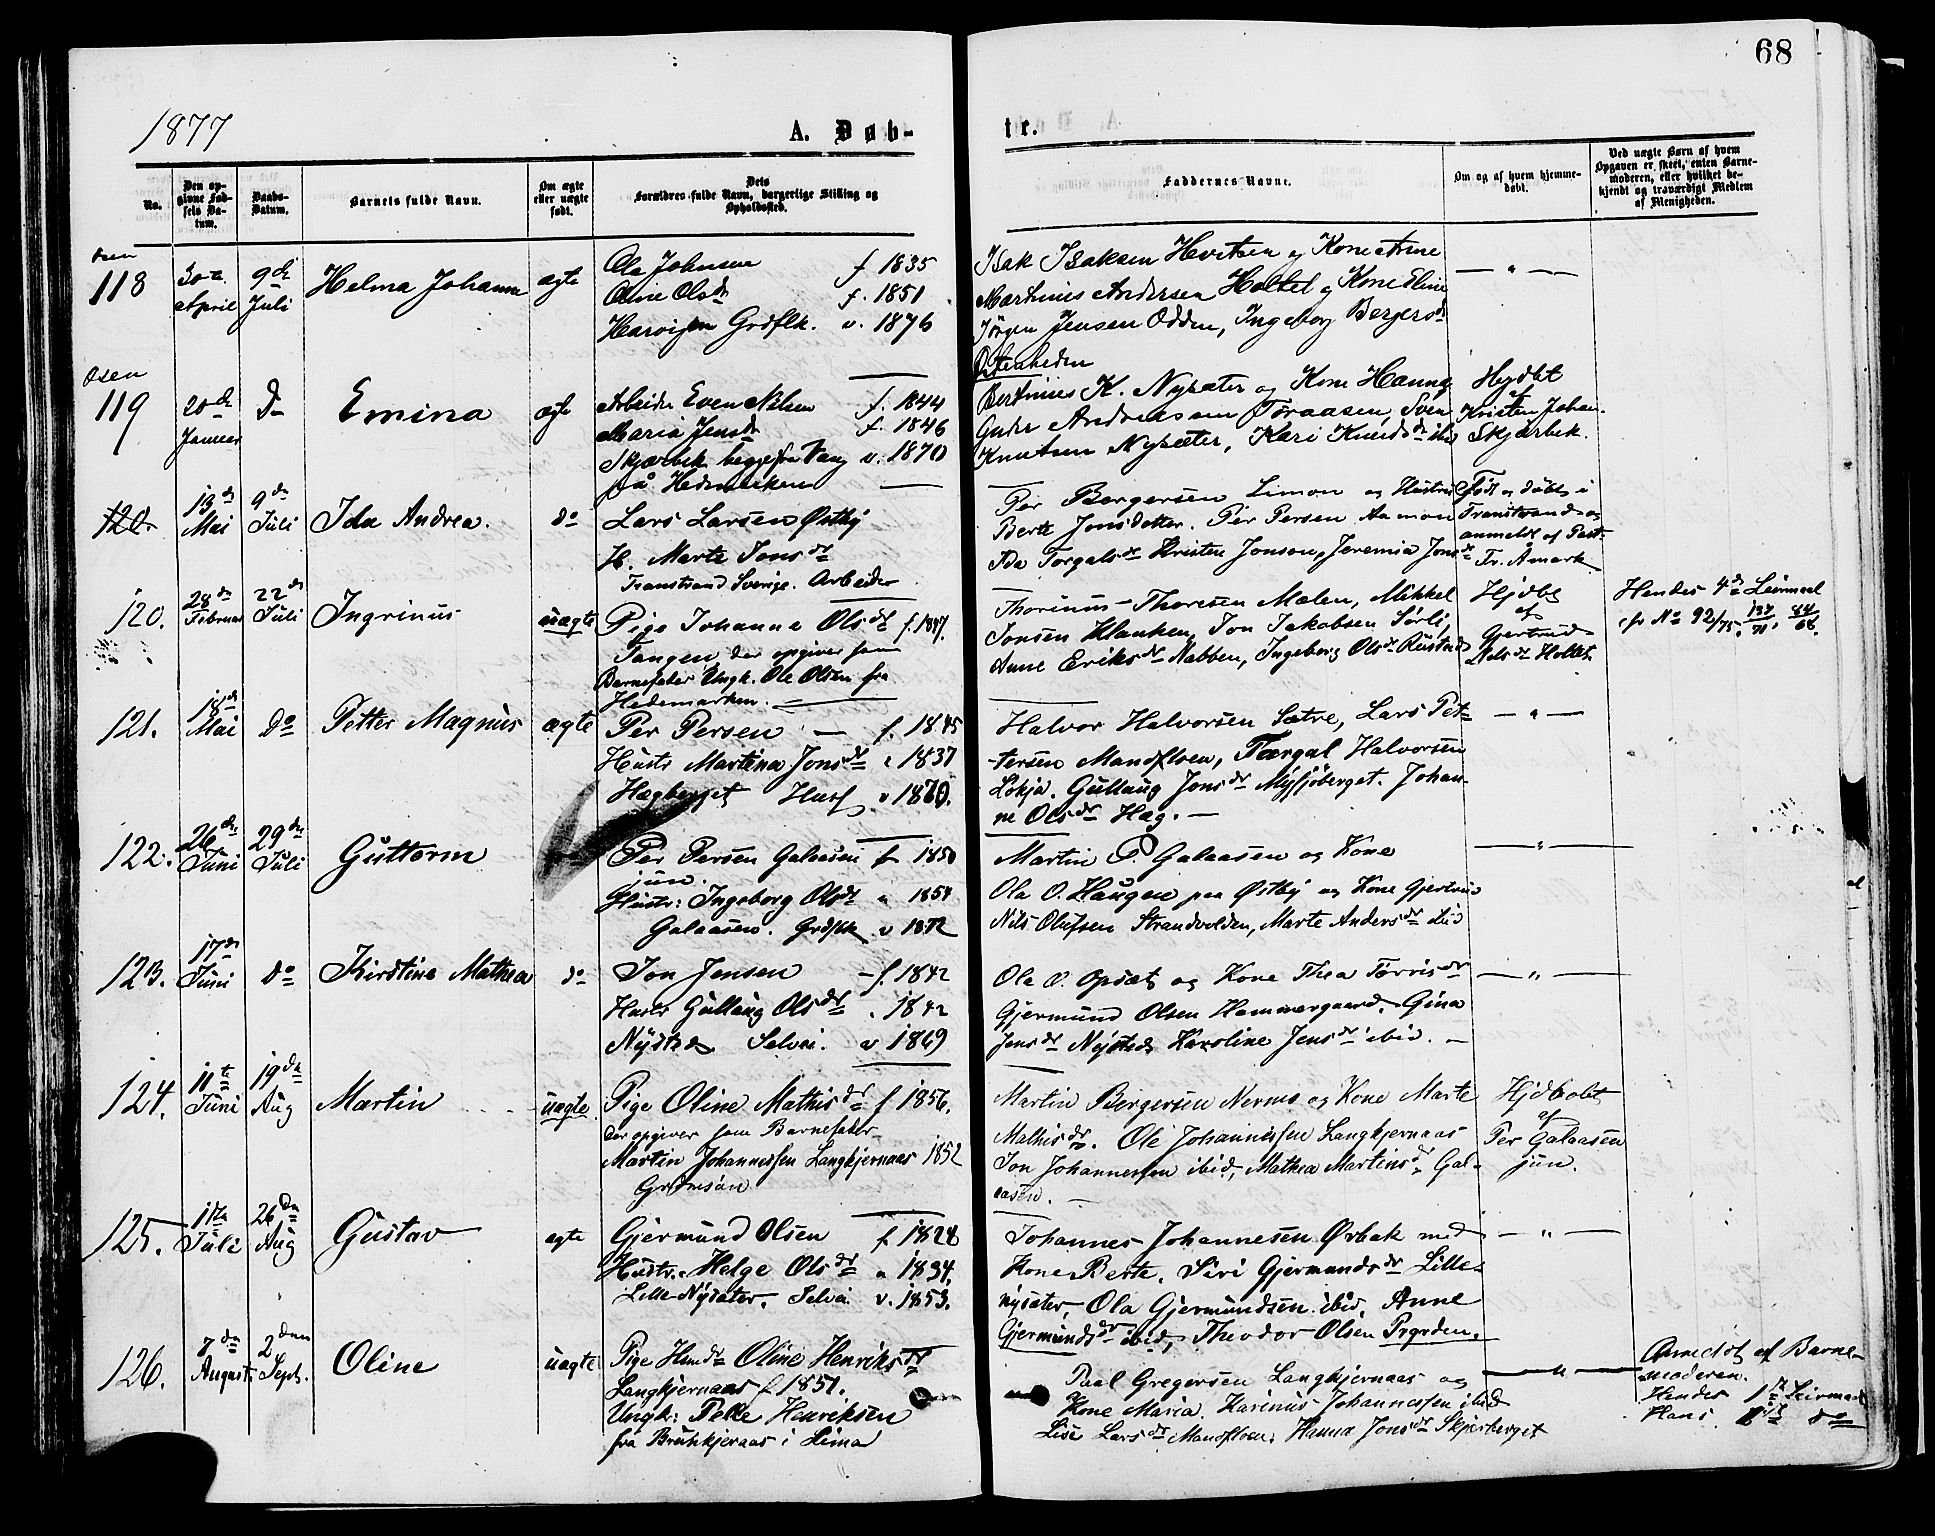 68
1877
A. Døb-
te.
No.
Den op-
givne Fød-
sels Da-
tum.
Daabs-
Datum.
Barnets fulde Navn.
Om ægte
eller uægte
født.
Dets
Forældres fulde Navn, borgerlige Stilling og
Opholdssted.
Faddernes Navne.
Om og af hvem hjemme-
døbt.
Ved uægte Børn af hvem
Opgaven er skeet, enten Barne-
moderen, eller hvilket be-
kjendt og troværdigt Medlem
af Menigheden.
Osen
118
30te
April
9de
Juli
Helma Johanne
ægte
Ola Johnsen f 1835
Oline Olsdr f. 1851
Grdflk. v. 1876
Isak Isaksen og Kone Arne
Martinus Andersen Holtet og Kone Eline
Jørgen Jensen Odden, Ingeborg Bergersdr
— " —
Osen
119
20de
Januar
Do
Emina
ægte
Arbeider Even Nilsen f. 1844
Maria Jensdr f. 1846
Skjærbek begge fra Vang v. 1870
på Hedemarken
Bertinus K. Nysæter og Kone Hanna,
Andreassen Toraasen, Sven
Knutsen Nysæter, Kari Knudsdr ibid
Hjdbt
af
Kristen Johan.
Skjærbek.
120.
13de
Mai
9de
Juli
Ida Andrea.
do
Lars Larsen Østby
H. Marte Jonsdr
Transtrand Sverige. Arbeider
Per Bergersen Limon og Hustru
Berte Jonsdotter. Per Persen Aamon
Ida Torgalsdr Kristen Jonson, Jeremia Jonsdr
Født og døbt i
Transtrand og
anmeldt af Past.
Fr. Åmark
120.
28de
Februar
22de
Juli
Ingrinus
uægte
Pige Johanne Olsdr f. 1847.
Tangen, der opgiver som
Barnefader Ungk. Ole Olsen fra
Hedemarken.
Thorinus Thoresen Mælen, Mikkel
Jonsen Klanken, Jon Jakobsen Sørli,
Anne Eriksdr Nabben, Ingeborg Olsdr Rustad
Hjdbt
af
Gjertrud
Nilsdr Holtet.
Hendes 4de Leiermaal
cfr No 92/75.
121.
18de
Mai
Do
Petter Magnus
ægte
Per Persen — f. 1845
Hustr Martina Jonsdr " 1837
Hagberget Husf v 1870.
Halvor Halvorsen Sætre, Lars Pet-
tersen Mandfloen, Torgal Halvorsen
Lokja. Gullaug Jonsdr Mysjøberget. Johan-
ne Olsdr Hag. —
— " —
122.
26de
Juni
29de
Juli
Guttorm
Per Persen Galaasen f 1850
jun.
Hustr: Ingeborg Olsdr " 1854
Galaasen. Grdflk v 1872
Martin P. Galaasen og Kone
Ola O. Haugen paa Østby og Kone Gjertrud
Nils Olufsen Strandvolden, Marte Andersdr Lid
— " —
123.
17de
Juni
Do
Kirstine Mathea
do
Jon Jensen — f. 1842
Hustr Gullaug Olsdr " 1842
Nysted Selvei. v 1869
Ola O. Opsæt og Kone Thea Torrisdr
Gjermund Olsen Hammergaard, Gina
Jensdr Nysted, Karoline Jensdr ibid. —
— " —
124.
11te
Juni
19de
Aug
Martin
uægte.
Pige Oline Mathisdr f 1856.
der opgiver som Barnefader
Martin Johannessen Langkjernaas 1852
Grdmsøn
Martin Bergersen Nermo og Kone Marte
Mathisdr. Ole Johannessen Langkjernaas
Jon Johannessen ibid, Mathea Martinsdr Gal-
aasen. —
Hjdbt
af
Per Galaasen
jun.
125.
11te
Juli
26de
Aug
Gustav
ægte
Gjermund Olsen f 1828
Hustr. Helge Olsdr " 1834.
Lille-Nysæter. Selvei v. 1853.
Johannes Johannesen Ørbak med
Kone Berte. Siri Gjermundsdr Lille-
nysæter, Ola Gjermundsen ibid, Anne
Gjermundsdr ibid, Theodor Olsen
— " —
126.
8de
August
2den
Sept.
Oline
uægte
Pige Oline Henriksdr
Langkjernaas f 1851.
Ungk: Pelle Henriksen
fra i Lima
Paal Gregersen Langkjernaas og
Kone Maria. Karinus Johannessen ibid
Lise Larsdr Mandfloen. Hanna Jonsdr Skjerberget
— " —
Anmeldt af Barne-
moderen.
Hendes 1ste Leiermaal
Hans 1ste do